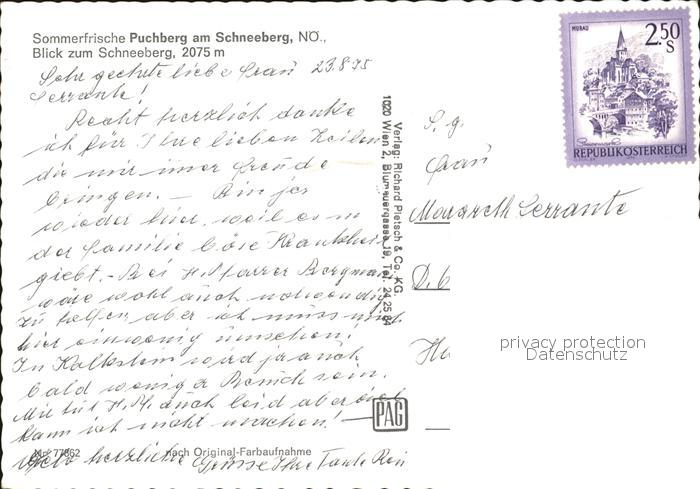 Sommerfrische Puchberg am Schneeberg, NÖ.,
Blick zum Schneeberg, 2075 m
Sehr geehrte liebe Frau 23.8.75
Serrante!
Recht herzlich danke
ich für Ihre lieben Zeilen
die mir immer Freude
bringen. – Bin jez
wieder hier, weil es in
der Familie böse Krankheit
giebt. – Bei H. Pfarrer Bergmann
wäre wohl auch notwendig
zu helfen, aber ich muss mich
hier
In Kalkstein wird ja auch
bald weniger Besuch sein.
Mir tut H. Pf. auch leid aber
kann ich nicht
herzliche Grüsse Ihre Tante Resi
Nr. 77862 nach Original-Farbaufnahme
Verlag: Richard Pietsch & Co. KG.
1020 Wien 2, Blumauergasse 19, Tel. 24 25 84
PAG
MURAU
2.50
S
REPUBLIK ÖSTERREICH
S. g.
Frau
Margareth Serrante
privacy protection
Datenschutz